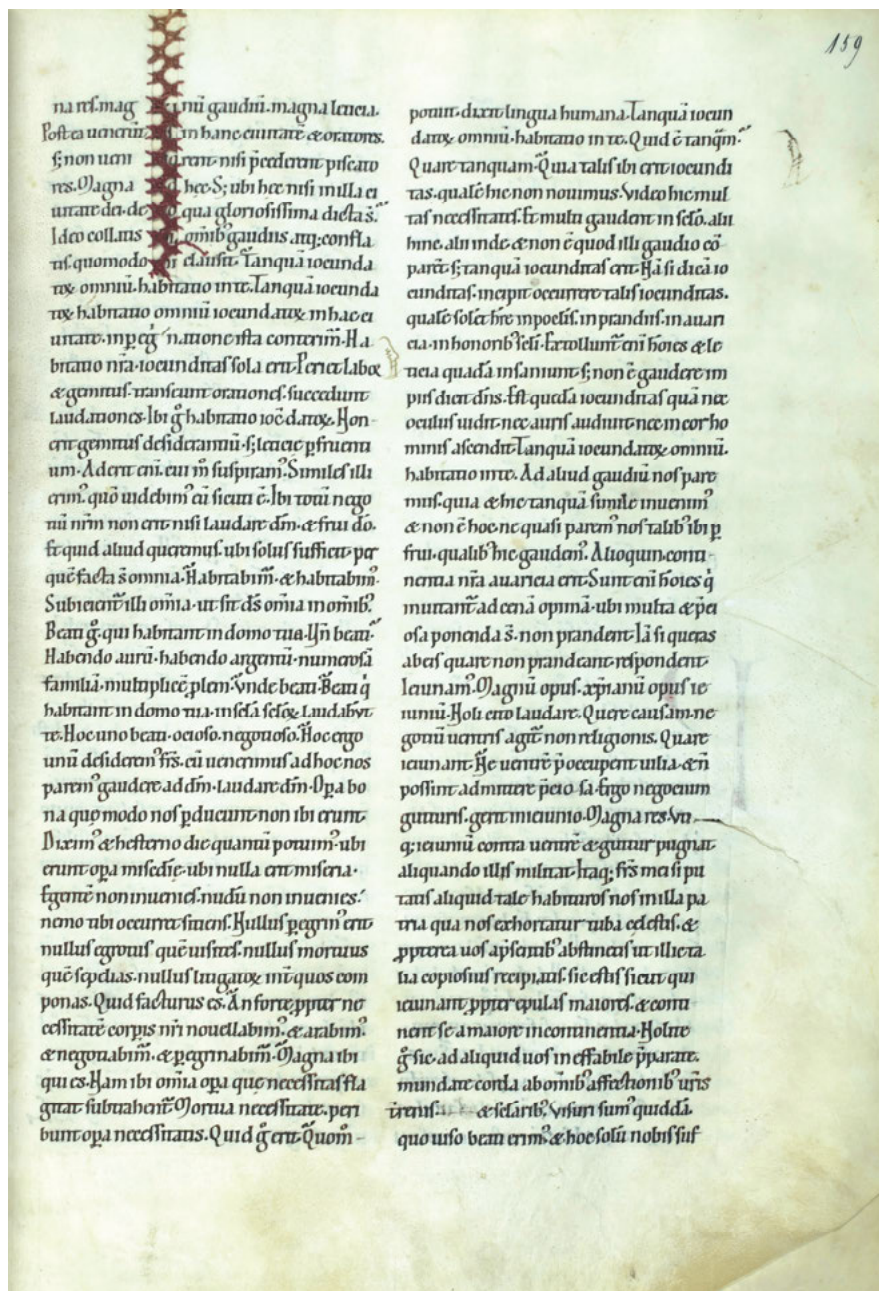 159
na res. mag nũ gaudiũ. magna leticia.
Post ea ueneruñt in hanc ciuitatẽ & oratores.
s; non ueni rent nisi p̃cederent piscato
res. Magna hec. S; ubi hec nisi in illa ci
uitate dei. de qua gloriosissima dicta s̃.
Ideo collatis omib; gaudiis atq; confla
tis. quomodo clausit. Tanquã iocunda
toꝝ omniũ. habitatio in te. Tanquã iocunda
toꝝ habitatio omniũ iocundatoꝝ in hac ci
uitate. in ꝑegrinatione ista conterim̃. Ha
bitatio nr̃a. iocunditas sola erit. Periet labor
& gemitus. transeunt orationes. succedunt
laudationes. Ibi g̊ habitatio iocũdatoꝝ. Non
erit gemitus desiderantiũ. s; leticie ꝑfruenti
um. Aderit eni. cui m̊ suspiram᷒. Similes illi
erim᷒. qm̃ uidebim᷒ eũ sicuti ẽ. Ibi totũ nego
tiũ nr̃m non erit nisi laudare dm̃. & frui dõ.
Et quid aliud queremus. ubi solus sufficit. per
quẽ facta s̃ omnia. Habitabim᷒. & habitabim᷒.
Subicient᷑ illi om̃ia. ut sit ds̃ om̃ia in om̃ib;
Beati g̊. qui habitant in domo tua. Vñ beati.
Habendo aurũ. habendo argentũ. numerosã
familiã. multiplicẽ ꝓlem. Vnde beati. Beati q̇
habitant in domo tua. in scl̃a scl̃oꝝ laudabũt
te. Hoc uno beati. ocioso. negotioso. Hoc ergo
unũ desiderem᷒ frs̃. cũ uenerimus ad hoc nos
parem᷒ gaudere ad dm̃. laudare dm̃. Oꝑa bo
na quo modo nos ꝑducunt. non ibi erunt.
Dixim᷒ & hesterno die quantũ potuim᷒. ubi
erunt oꝑa misc̃die. ubi nulla erit miseria.
Egentẽ non inuenies. nudũ non inuenies.
nemo tibi occurret sitiens. Nullus ꝑegrin᷒ erit.
nullus egrotus quẽ uisites. nullus mortuus
quẽ sepelias. nullus litigator int̃ quos com
ponas. Quid facturus es. An forte ꝓpter ne
cessitatẽ corꝑis nr̃i nouellabim᷒. & arabim᷒.
& negotiabim᷒. & ꝑegrinabim᷒. Magna ibi
qui es. Nam ibi om̃ia oꝑa que necessitas fla
gitat subtrahent᷑. Mortua necessitate. peri
bunt oꝑa necessitatis. Quid g̊ erit. Quom̊
potuit. dixit lingua humana. Tanquã iocun
datoꝝ omniũ. habitatio in te. Quid ẽ tanq̃m.
Quare tanquam. Quia talis ibi erit iocundi
tas. qualẽ hic non nouimus. Video hic mul
tas necessitates. Et multi gaudent in scl̃o. alii
hinc. alii inde. & non ẽ quod illi gaudio cõ
parẽ. s; tanquã iocunditas erit. Nã si dicã io
cunditas. incipit occurrere talis iocunditas.
qualẽ solet hr̃e in pocl̃is. in prandiis. in auari
cia. in honorib; scl̃i. Extollunt᷑ eni hoĩes & le
ticia quadã insaniunt. s; non ẽ gaudere im
piis dicit dn̄s. Est quedã iocunditas quã nec
oculus uidit. nec auris audiuit. nec in cor ho
minis ascendit. Tanquã iocundatoꝝ omniũ.
habitatio in te. Ad aliud gaudiũ nos pare
mus. quia & hic tanquã simile inuenim᷒
& non ẽ hoc. ne quasi parem᷒ nos talib; ibi ꝑ
frui. qualib; hic gaudem᷒. Alioquin conti
nentia nr̃a auaricia erit. Sunt eni hoĩes q̇
inuitant᷑ ad cenã opimã. ubi multa & p̃ci
osa ponenda s̃. non prandent. Iã si queras
ab eis quare non prandeant. respondent.
Ieiunam᷒. Magnũ opus. xp̃ianũ opus ie
iuniũ. Noli cito laudare. Quere causam. ne
gotiũ uentris agit᷑ non religionis. Quare
ieiunant. Ne uentrẽ p̃occupent uilia. & ñ
possint admittere p̃cio sa. Ergo negocium
gutturis. gerit ieiunio. Magna res. Vti
q; ieiuniũ contra uentrẽ & guttur pugnat
aliquando illis militat. Itaq; frs̃ mei si pu
tatis aliquid tale habituros nos in illa pa
tria qua nos exhortatur tuba celestis. &
ꝓpterea uos a p̃sentib; abstinetis ut illic ta
lia copiosius recipiatis. sic estis sicut qui
ieiunant ꝓpter epulas maiores. & conti
nent se a maiore incontinentia. Nolite
g̊ sic. ad aliquid uos ineffabile p̃parate.
mundate corda ab om̃ib; affectionib; ur̃is
t̃renis. & scl̃arib; Visuri sum᷒ quiddã.
quo uiso beati erim᷒. & hoc solũ nobis suf